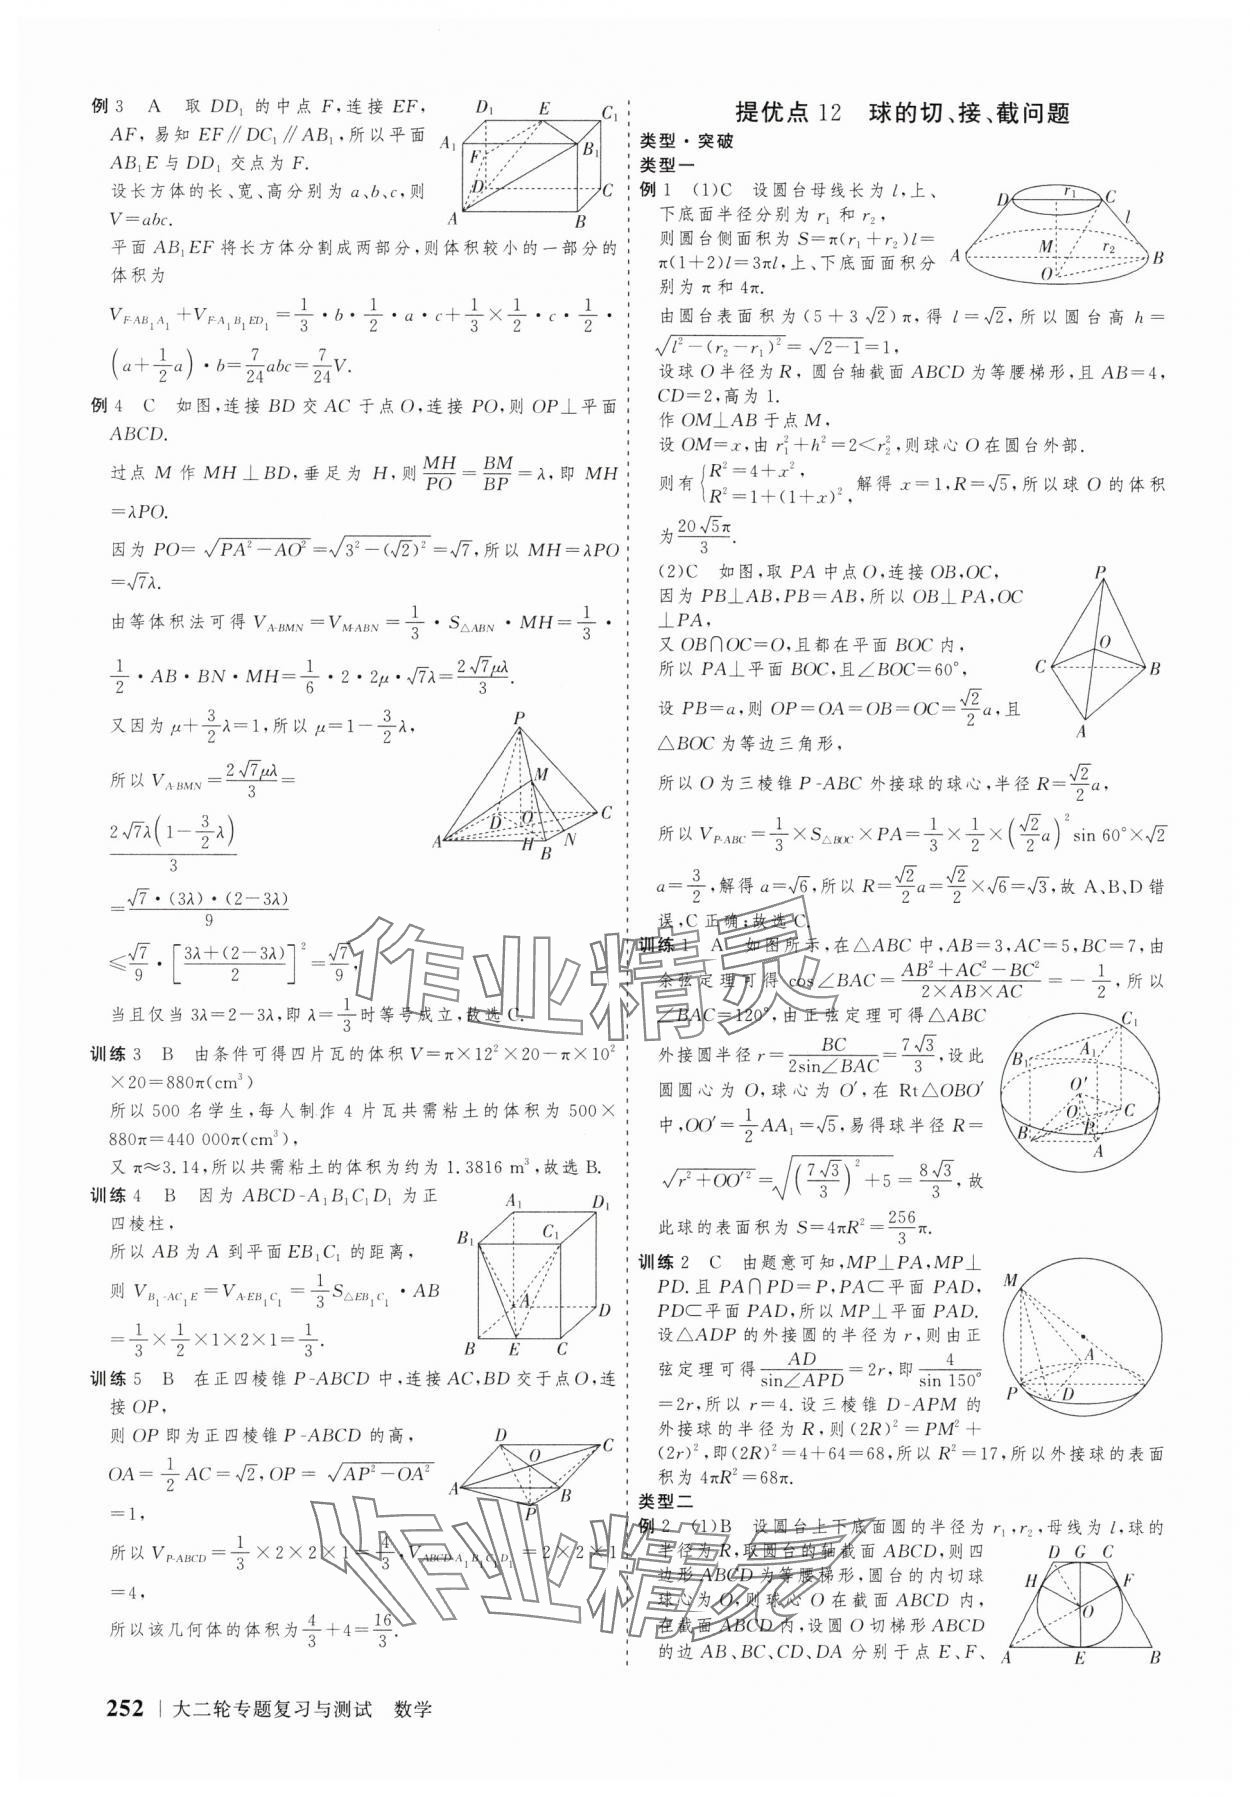 例3 A 取 DD₁ 的中点 F,连接 EF,
AF,易知 EF∥DC₁∥AB₁,所以平面
AB₁E 与 DD₁ 交点为 F.
设长方体的长、宽、高分别为 a、b、c,则
V=abc.
平面 AB₁EF 将长方体分割成两部分,则体积较小的一部分的
体积为
V_{F-AB₁A₁}+V_{F-A₁B₁ED₁}=1/3·b·1/2·a·c+1/3×1/2·c·1/2·
(a+1/2a)·b=7/24abc=7/24V.
D₁ E C₁
A₁ B₁
F
D C
A B
例4 C 如图,连接 BD 交 AC 于点 O,连接 PO,则 OP⊥平面
ABCD.
过点 M 作 MH⊥BD,垂足为 H,则MH/PO=BM/BP=λ,即 MH
=λPO.
因为 PO=√(PA²-AO²)=√(3²-(√2)²)=√7,所以 MH=λPO
=√7λ.
由等体积法可得 V_{A-BMN}=V_{M-ABN}=1/3·S_{△ABN}·MH=1/3·
1/2·AB·BN·MH=1/6·2·2μ·√7λ=2√7μλ/3.
又因为 μ+3/2λ=1,所以 μ=1-3/2λ,
所以 V_{A-BMN}=2√7μλ/3=
2√7λ(1-3/2λ)/3
=√7·(3λ)·(2-3λ)/9
≤√7/9·[3λ+(2-3λ)/2]²=√7/9,
当且仅当 3λ=2-3λ,即 λ=1/3时等号成立,故选 C.
P
M
D O C
A H B N
训练3 B 由条件可得四片瓦的体积 V=π×12²×20-π×10²
×20=880π(cm³)
所以 500 名学生,每人制作 4 片瓦共需粘土的体积为 500×
880π=440 000π(cm³),
又 π≈3.14,所以共需粘土的体积为约为 1.3816 m³,故选 B.
训练4 B 因为 ABCD-A₁B₁C₁D₁ 为正
四棱柱,
所以 AB 为 A 到平面 EB₁C₁ 的距离,
则 V_{B₁-AC₁E}=V_{A-EB₁C₁}=1/3S_{△EB₁C₁}·AB
=1/3×1/2×1×2×1=1/3.
A₁ D₁
B₁ C₁
A D
B E C
训练5 B 在正四棱锥 P-ABCD 中,连接 AC,BD 交于点 O,连
接 OP,
则 OP 即为正四棱锥 P-ABCD 的高,
OA=1/2AC=√2,OP=√(AP²-OA²)
=1,
所以 V_{P-ABCD}=1/3×2×2×1=4/3,V_{ABCD-A₁B₁C₁D₁}=2×2×1
=4,
所以该几何体的体积为4/3+4=16/3.
D C
O
A B
P
提优点 12 球的切、接、截问题
类型·突破
类型一
例1 (1)C 设圆台母线长为 l,上、
下底面半径分别为 r₁ 和 r₂,
则圆台侧面积为 S=π(r₁+r₂)l=
π(1+2)l=3πl,上、下底面面积分
别为 π 和 4π.
由圆台表面积为(5+3√2)π,得 l=√2,所以圆台高 h=
√(l²-(r₂-r₁)²)=√(2-1)=1,
设球 O 半径为 R,圆台轴截面 ABCD 为等腰梯形,且 AB=4,
CD=2,高为 1.
作 OM⊥AB 于点 M,
设 OM=x,由 r₁²+h²=2<r₂²,则球心 O 在圆台外部.
则有{R²=4+x²,
R²=1+(1+x)², 解得 x=1,R=√5,所以球 O 的体积
为20√5π/3.
D r₁ C
l
M r₂
A B
O
(2)C 如图,取 PA 中点 O,连接 OB,OC,
因为 PB⊥AB,PB=AB,所以 OB⊥PA,OC
⊥PA,
又 OB∩OC=O,且都在平面 BOC 内,
所以 PA⊥平面 BOC,且∠BOC=60°,
设 PB=a,则 OP=OA=OB=OC=√2/2a,且
△BOC 为等边三角形,
所以 O 为三棱锥 P-ABC 外接球的球心,半径 R=√2/2a,
所以 V_{P-ABC}=1/3×S_{△BOC}×PA=1/3×1/2×(√2/2a)²sin 60°×√2
a=3/2,解得 a=√6,所以 R=√2/2a=√2/2×√6=√3,故 A、B、D 错
误,C 正确;故选 C.
P
O
C B
A
训练1 A 如图所示,在△ABC 中,AB=3,AC=5,BC=7,由
余弦定理可得 cos∠BAC=AB²+AC²-BC²/2×AB×AC=-1/2,所以
∠BAC=120°,由正弦定理可得△ABC
外接圆半径 r=BC/2sin∠BAC=7√3/3,设此
圆圆心为 O,球心为 O′,在 Rt△OBO′
中,OO′=1/2AA₁=√5,易得球半径 R=
√(r²+OO′²)=√((7√3/3)²+5)=8√3/3,故
此球的表面积为 S=4πR²=256/3π.
C₁
B₁ A₁
O′
O C
B A
训练2 C 由题意可知,MP⊥PA,MP⊥
PD.且 PA∩PD=P,PA⊂平面 PAD,
PD⊂平面 PAD,所以 MP⊥平面 PAD.
设△ADP 的外接圆的半径为 r,则由正
弦定理可得AD/sin∠APD=2r,即4/sin 150°
=2r,所以 r=4.设三棱锥 D-APM 的
外接球的半径为 R,则(2R)²=PM²+
(2r)²,即(2R)²=4+64=68,所以 R²=17,所以外接球的表面
积为 4πR²=68π.
M
A
P D
类型二
例2 (1)B 设圆台上下底面圆的半径为 r₁,r₂,母线为 l,球的
半径为 R,取圆台的轴截面 ABCD,则四
边形 ABCD 为等腰梯形,圆台的内切球
球心为 O,则球心 O 在截面 ABCD 内,
在截面 ABCD 内,设圆 O 切梯形 ABCD
的边 AB、BC、CD、DA 分别于点 E、F、
D G C
H F
O
A E B
作业精灵
作业精灵
252 | 大二轮专题复习与测试 数学